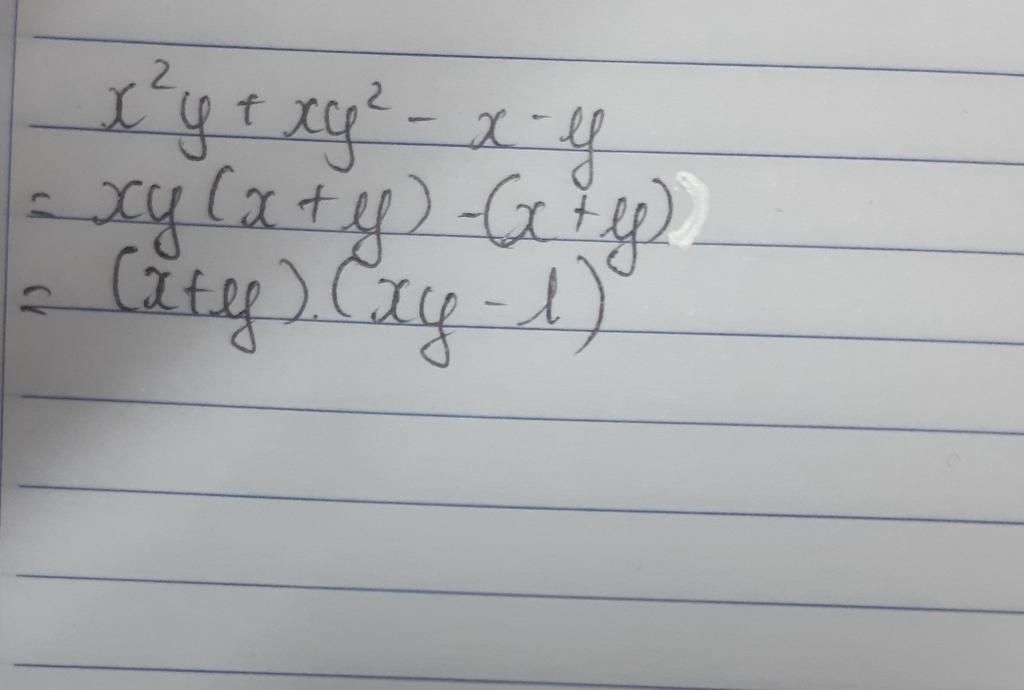 x²y + xy² - x - y
= xy(x + y) - (x + y)
= (x+y).(xy - 1)